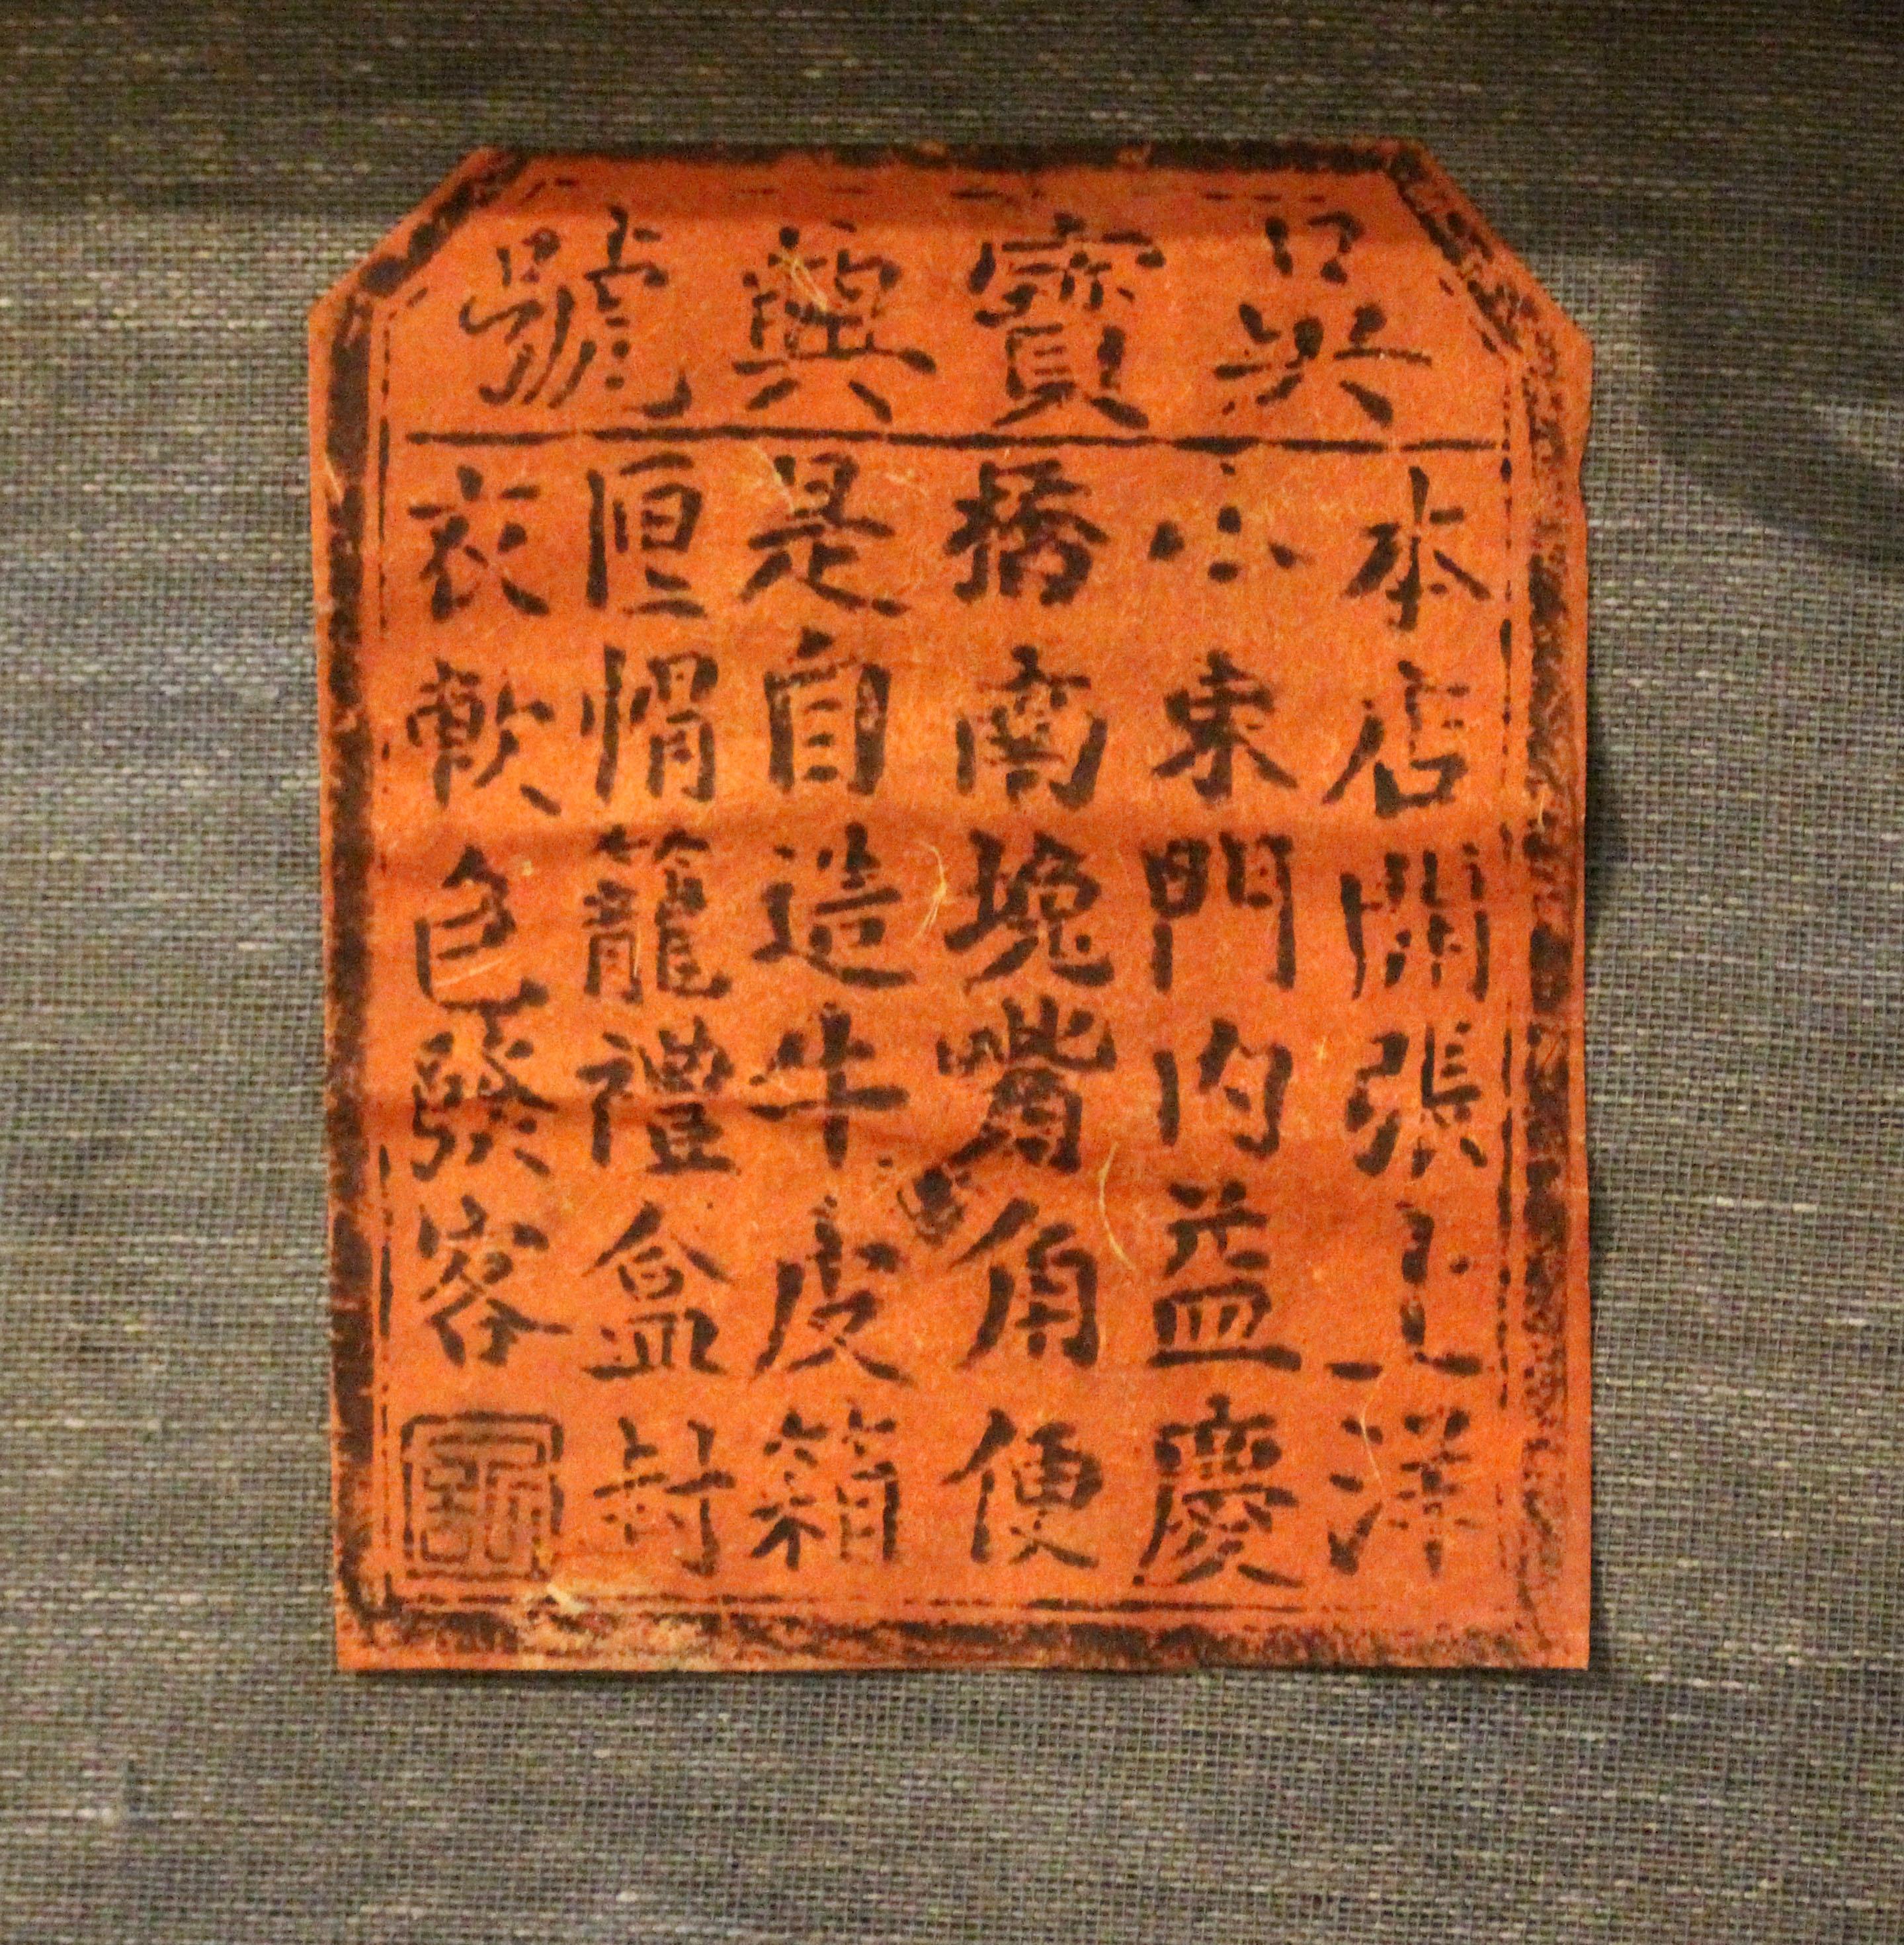 吳寶興號
本店開張上洋
小東門内益慶
橋南堍嘴角便
是自造牛皮箱
匣帽籠禮盒封
衣色發客